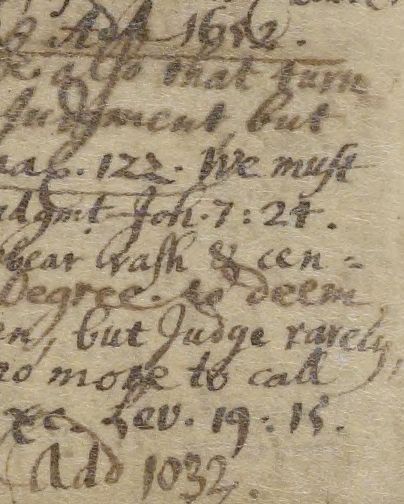 Add 1652.
also that turn
Judgment, but
pag. 122. We must
udgmt Joh. 7:24.
bear rash & cen=
Degree. to deem
en, but Judge rarely,
no more to call
&c. Lev. 19:15.
Add 1032.